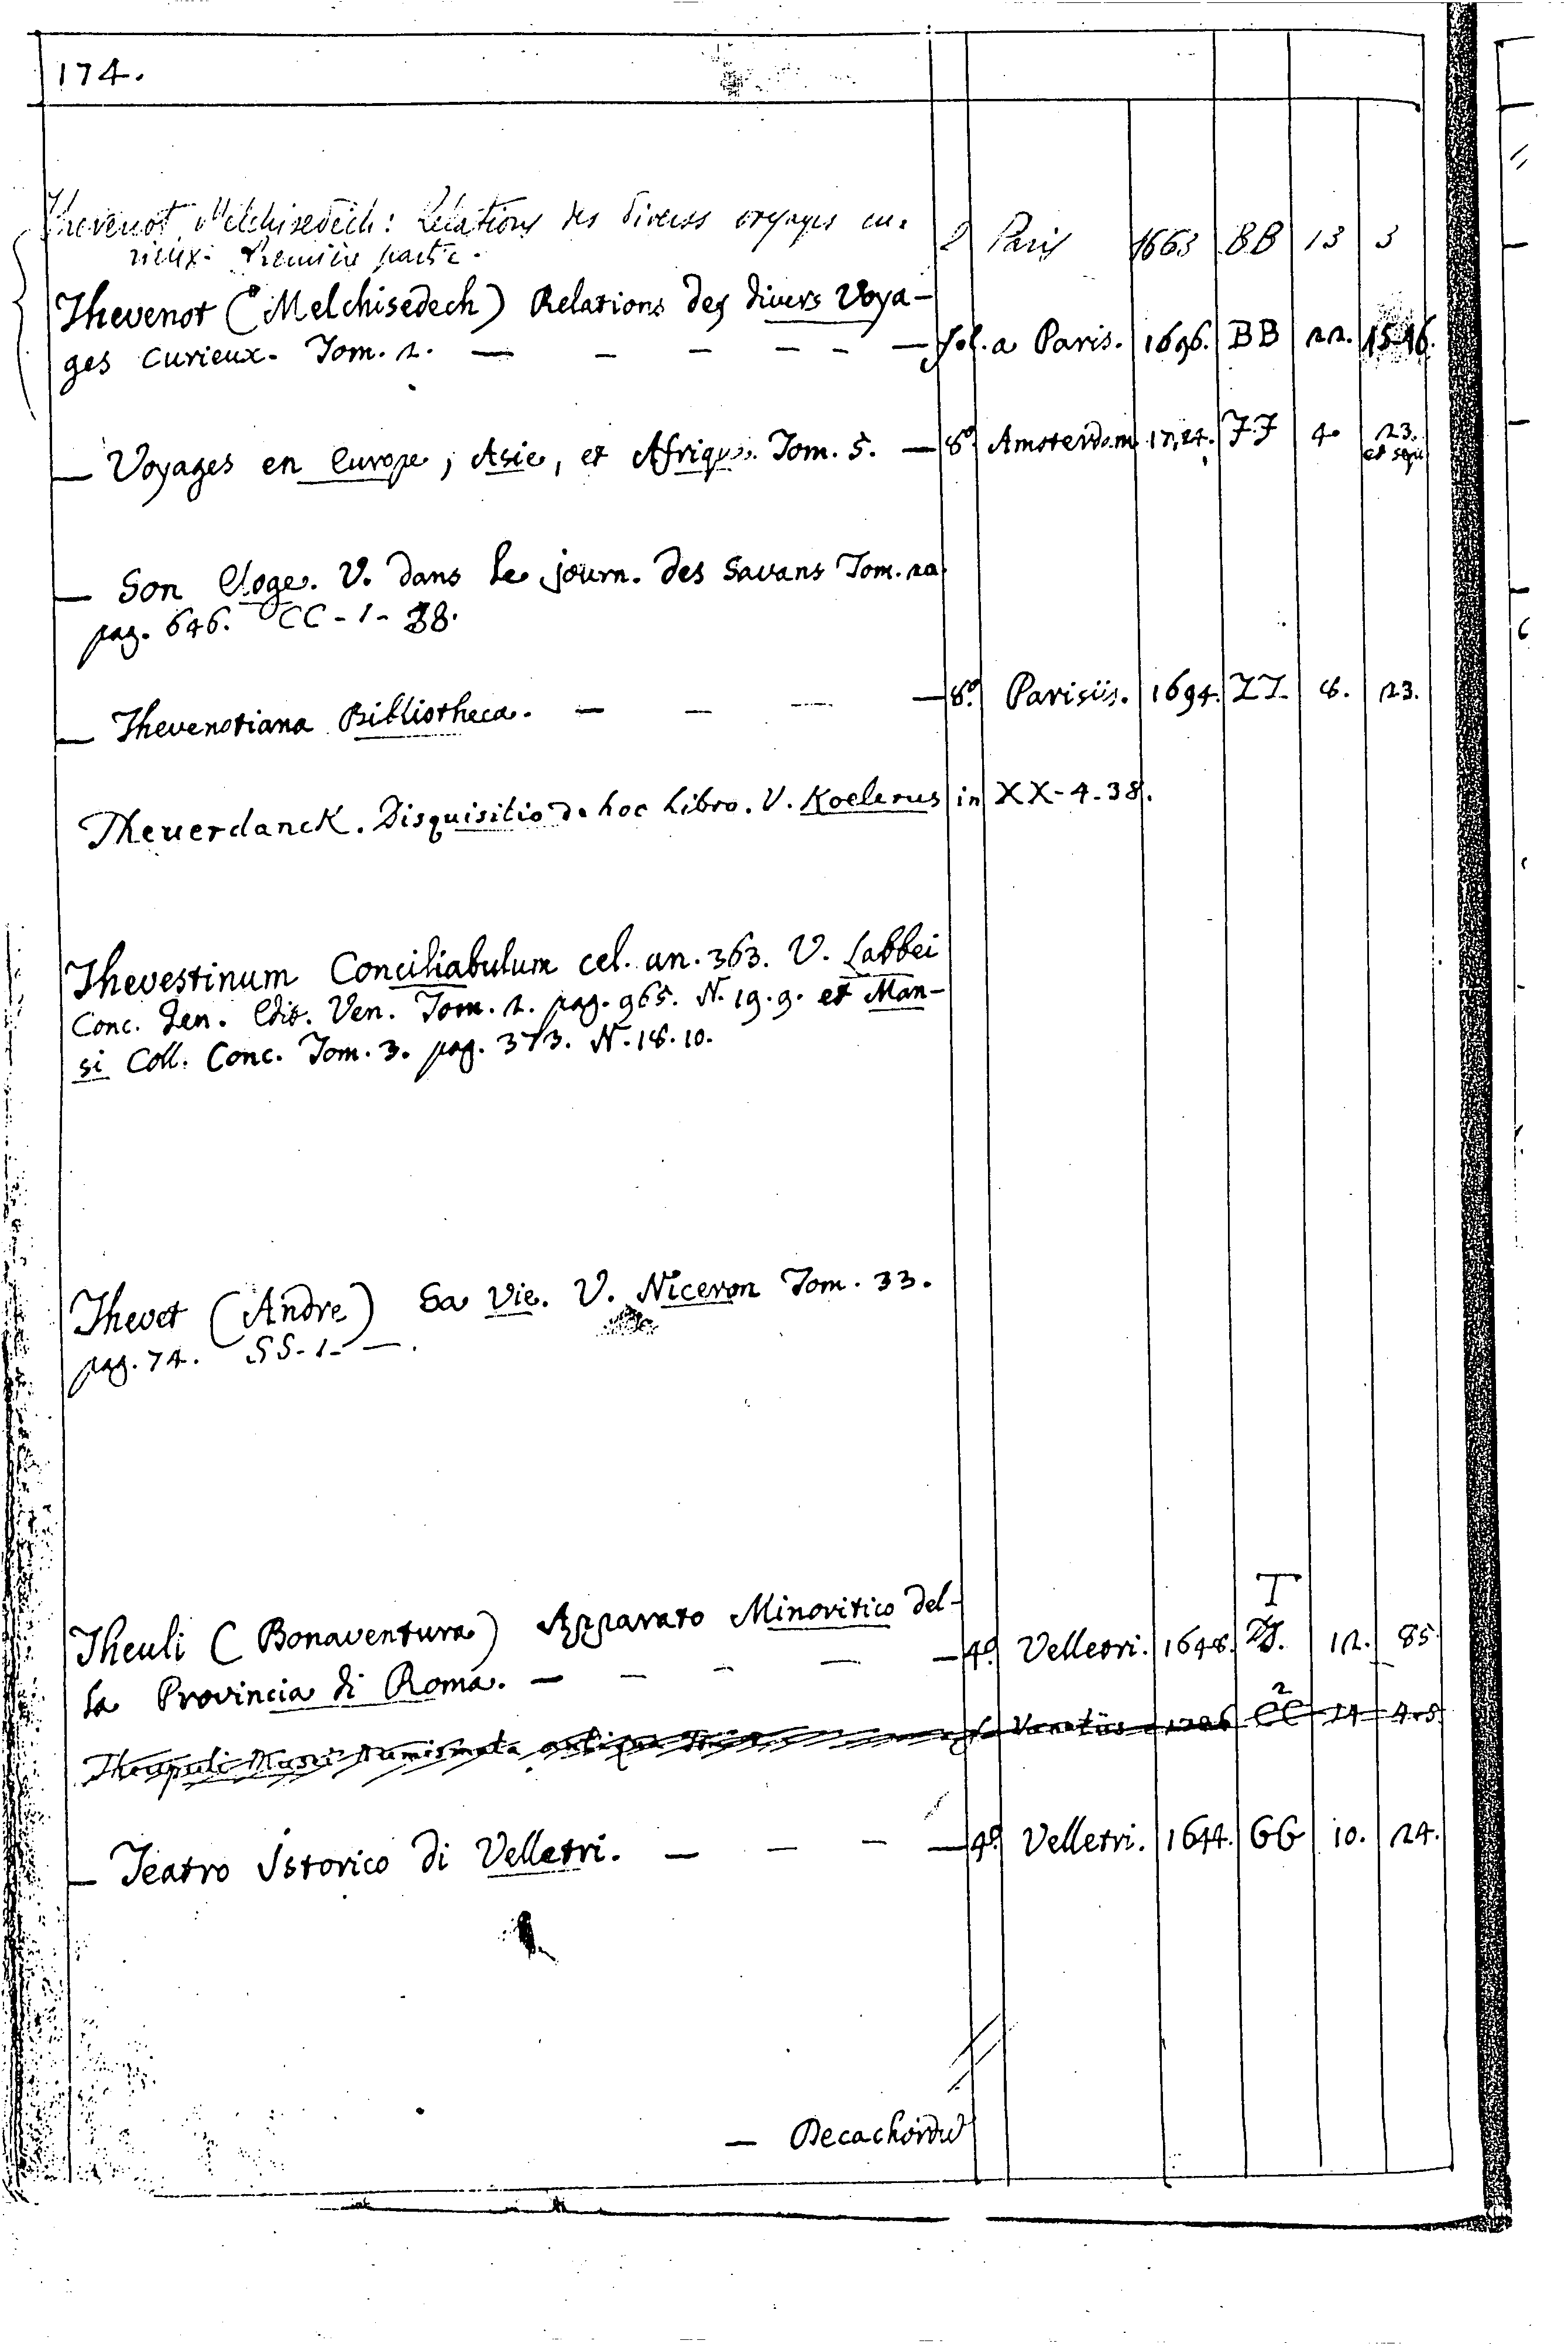 174.
Thevenot Melchisedech: Relations des divers voyages cu-
rieux. Première partie. Paris 1663 BB 13 3
Thevenot (Melchisedech) Relations des divers Voya-
ges curieux. Tom. 2. — — — — — — fol. a Paris. 1696. BB 22. 15.16.
— Voyages en Europe, Asie, et Afrique. Tom. 5. — 8º Amsterdam 1727. FF 4. 23. et sequ
— Son Eloge. V. dans le journ. des Savans Tom. 20
pag. 646. CC-1-
— Thevenotiana Bibliotheca. — — — — 8º Parisiis. 1694. ZZ. 8. 23.
Theuerdanck. Disquisitio de hoc Libro. V. Koelerus in XX-4-38.
Thevestinum Conciliabulum cel. an. 363. V. Labbei
Conc. Gen. Edit. Ven. Tom. 2. pag. 965. N. 19.9. et Man-
si Coll. Conc. Tom. 3. pag. 373. N. 18. 10.
Thevet (Andre) Sa Vie. V. Niceron Tom. 33.
pag. 74. SS-1- —.
T
Theuli (Bonaventura) Apparato Minoritico del-
la Provincia di Roma. — — — — — 4º Velletri. 1648. 12. 85.
Theupuli Musei Numismata antiqua Venetiis 1736 CC 2 14 4.5.
— Teatro Istorico di Velletri. — — — — 4º Velletri. 1644. GG 10. 24.
— Decachordū